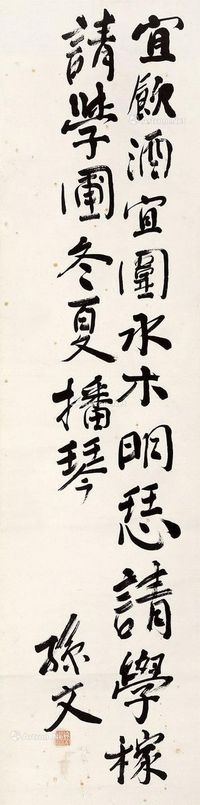 宜飲酒宜圍水木明恁請學稼
請學圃冬夏播琴
孫文